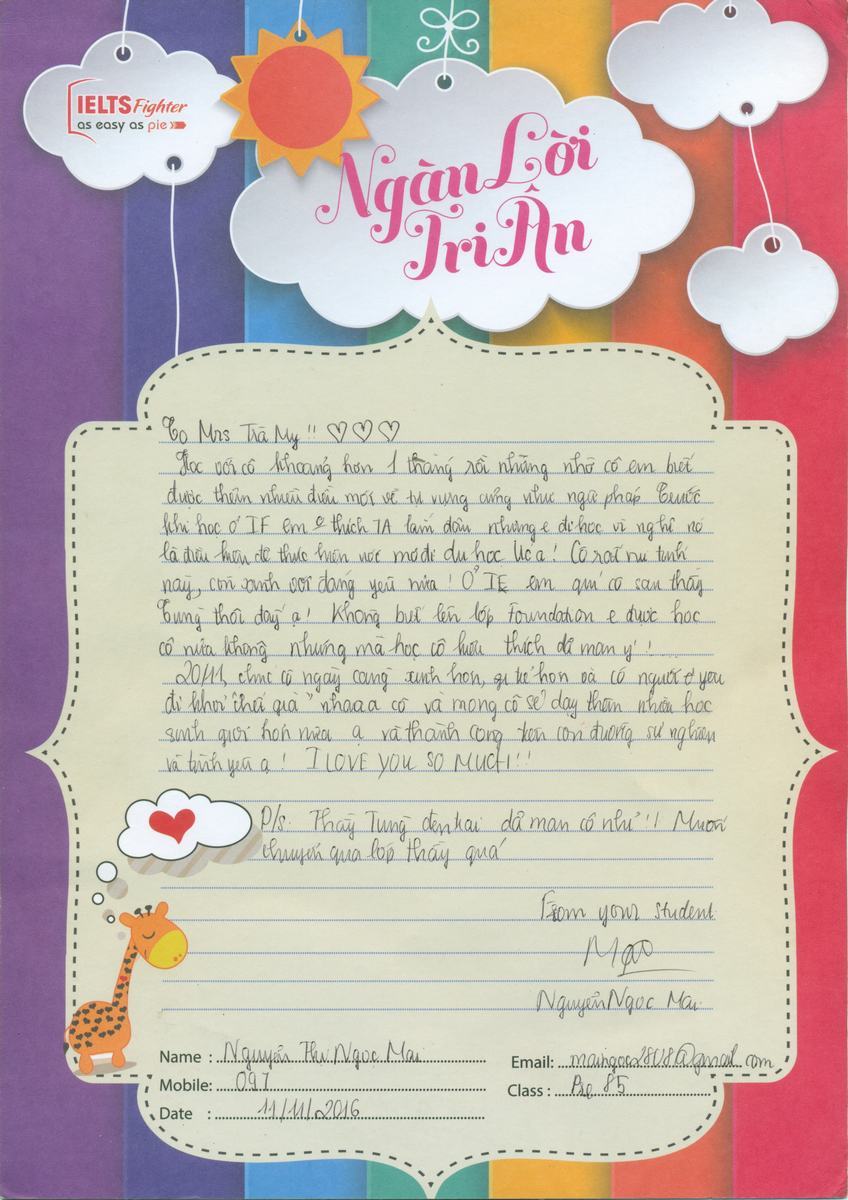 IELTS Fighter
as easy as pie
Ngàn Lời
Tri Ân
To Mrs Trà My !! ♡♡♡
Học với cô khoảng hơn 1 tháng rồi nhưng nhờ cô em biết
được thêm nhiều điều mới về từ vựng cũng như ngữ pháp. Trước
khi học ở IF em o thích TA lắm đâu nhưng e đi học vì nghĩ nó
là điều kiện để thực hiện ước mơ đi du học Úc ạ! Cô rất nữ tính
này, còn xinh với đáng yêu nữa! Ở IE em quí cô sau thầy
Tùng thôi đấy ạ! Không biết lên lớp Foundation e được học
cô nữa không nhưng mà học cô luôn thích dã man ý!....
20/11, chúc cô ngày càng xinh hơn, hơn và có người yêu
đi khỏi "ế quá" nhaaa cô và mong cô sẽ dạy thêm nhiều học
sinh giỏi hơn nữa ạ và thành công trên con đường sự nghiệp
và tình yêu ạ! I LOVE YOU SO MUCH!!!
P/s: Thầy Tùng đẹp trai dã man cô nhỉ!! Muốn
chuyển qua lớp thầy quá
From your student
Mai
Nguyễn Ngọc Mai
Name : Nguyễn Thị Ngọc Mai Email: maingoc2808@gmail.com
Mobile: 097 Class : Pre 85
Date : 11/11/2016